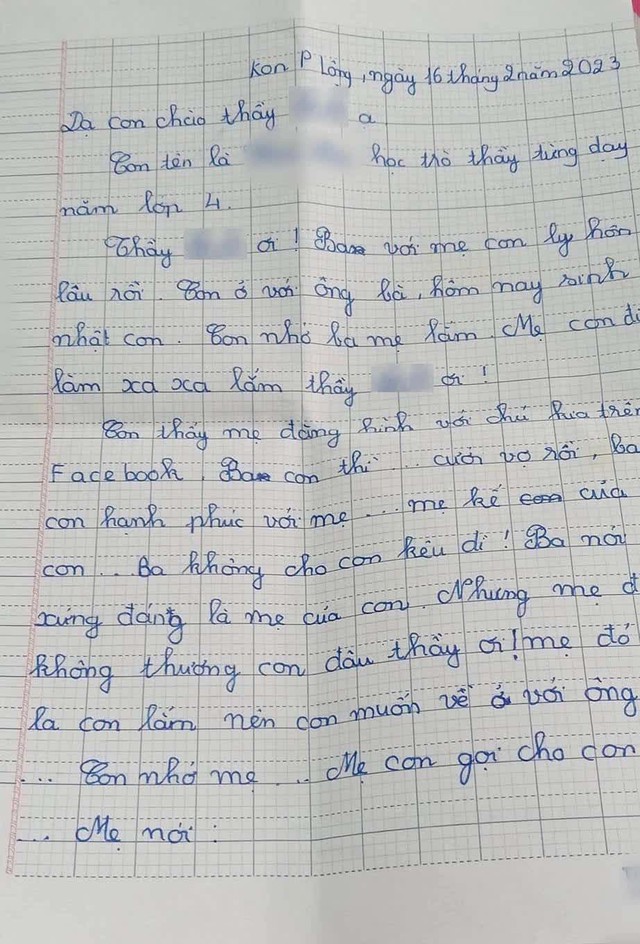 Kon P Lông, ngày 16 tháng 2 năm 2023
Dạ con chào thầy ạ
Con tên là học trò thầy từng dạy
năm lớp 4.
Thầy ơi! Ba với mẹ con ly hôn
lâu rồi. Con ở với ông bà, hôm nay sinh
nhật con. Con nhớ ba mẹ lắm. Mẹ con đi
làm xa xa lắm thầy ơi!
Con thấy mẹ đăng hình với chú kia trên
Facebook. Ba con thì... cưới vợ rồi, ba
con hạnh phúc với mẹ... mẹ kế của
con... Ba không cho con kêu dì! Ba nói
xứng đáng là mẹ của con. Nhưng mẹ đ
không thương con đâu thầy ơi! mẹ đó
la con lắm nên con muốn về ở với ông
... Con nhớ mẹ... Mẹ con gọi cho con
... Mẹ nói: